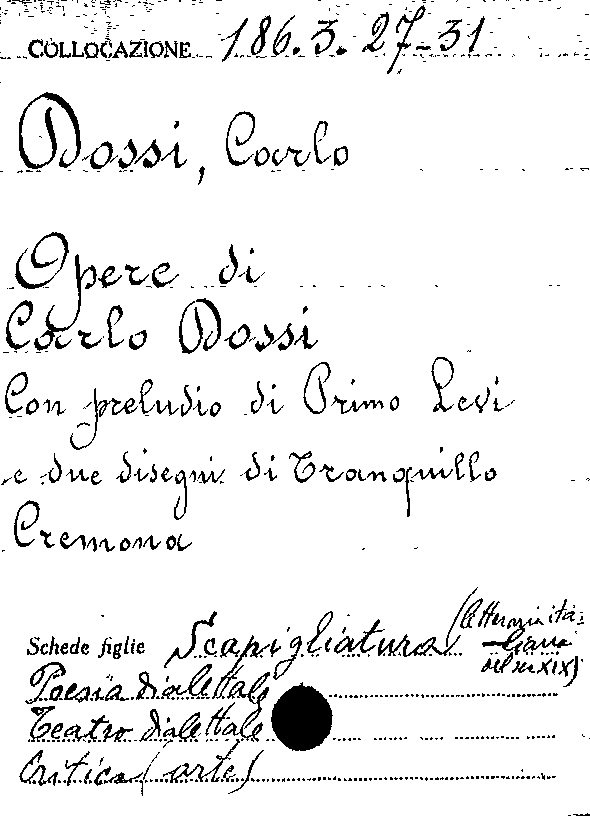 COLLOCAZIONE 186.3.27-31
Dossi, Carlo
Opere di
Carlo Dossi
Con preludio di Primo Levi
e due disegni di Tranquillo
Cremona
Schede figlie Scapigliatura (letteraria ita-
liana
del sec XIX)
Poesia dialettale
Teatro dialettale
Critica (arte)